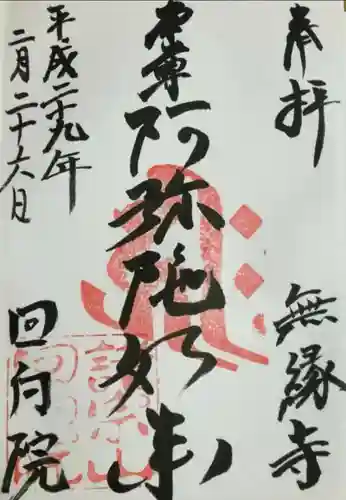 奉拝
無縁寺
本尊阿弥陀如来
平成二十九年
二月二十六日
回向院